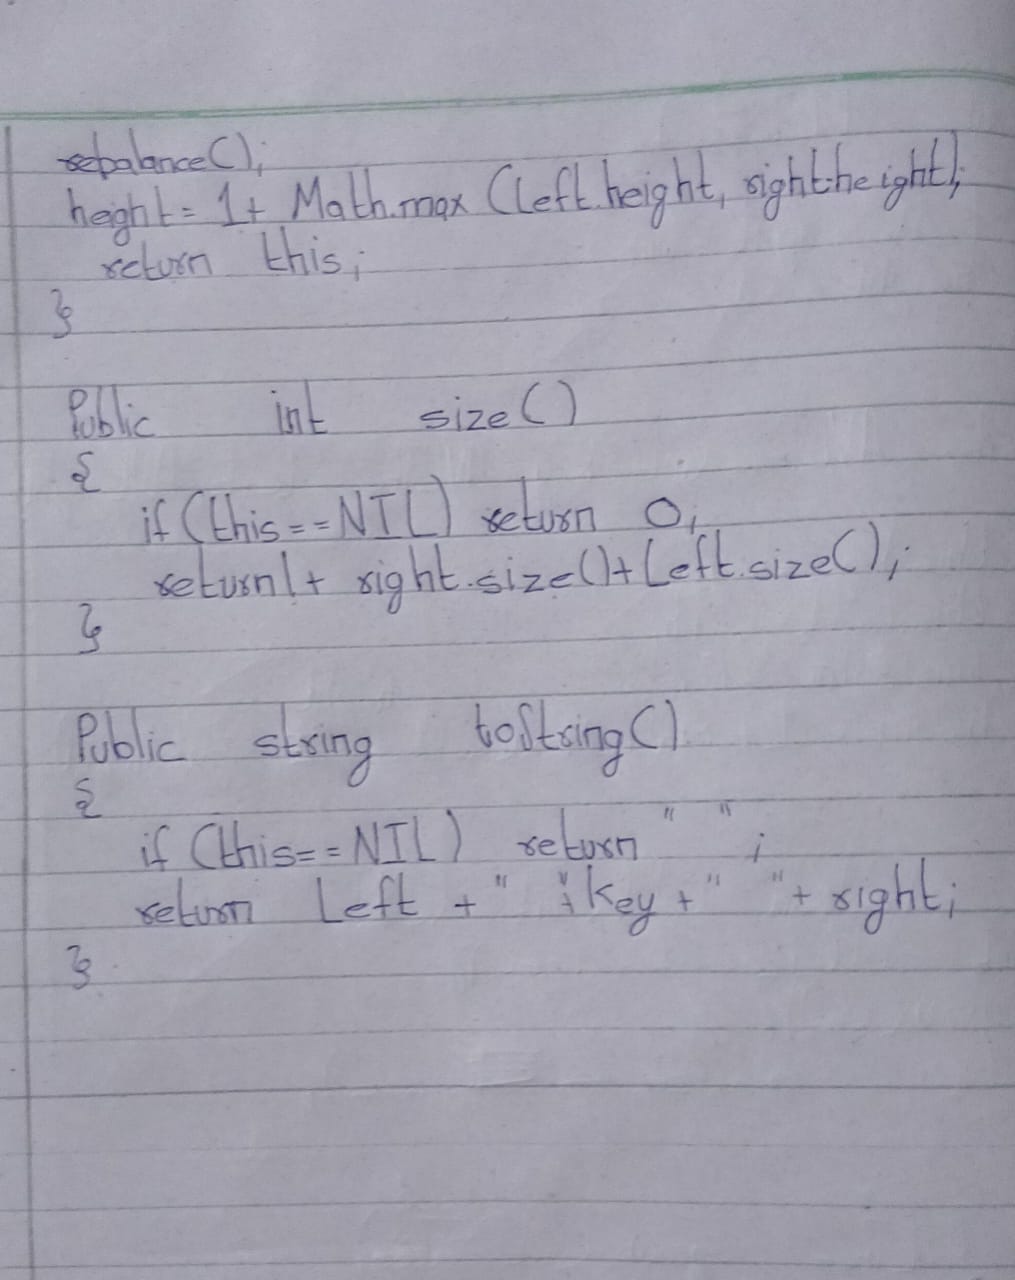 rebalance();
heght= 1+ Math.max (left.height, right.height);
return this;
}
Public int size()
{
if (this==NIL) return 0;
return 1+ right.size()+left.size();
}
Public string toString()
{
if (this==NIL) return " ";
return left +" "+key +" "+ right;
}